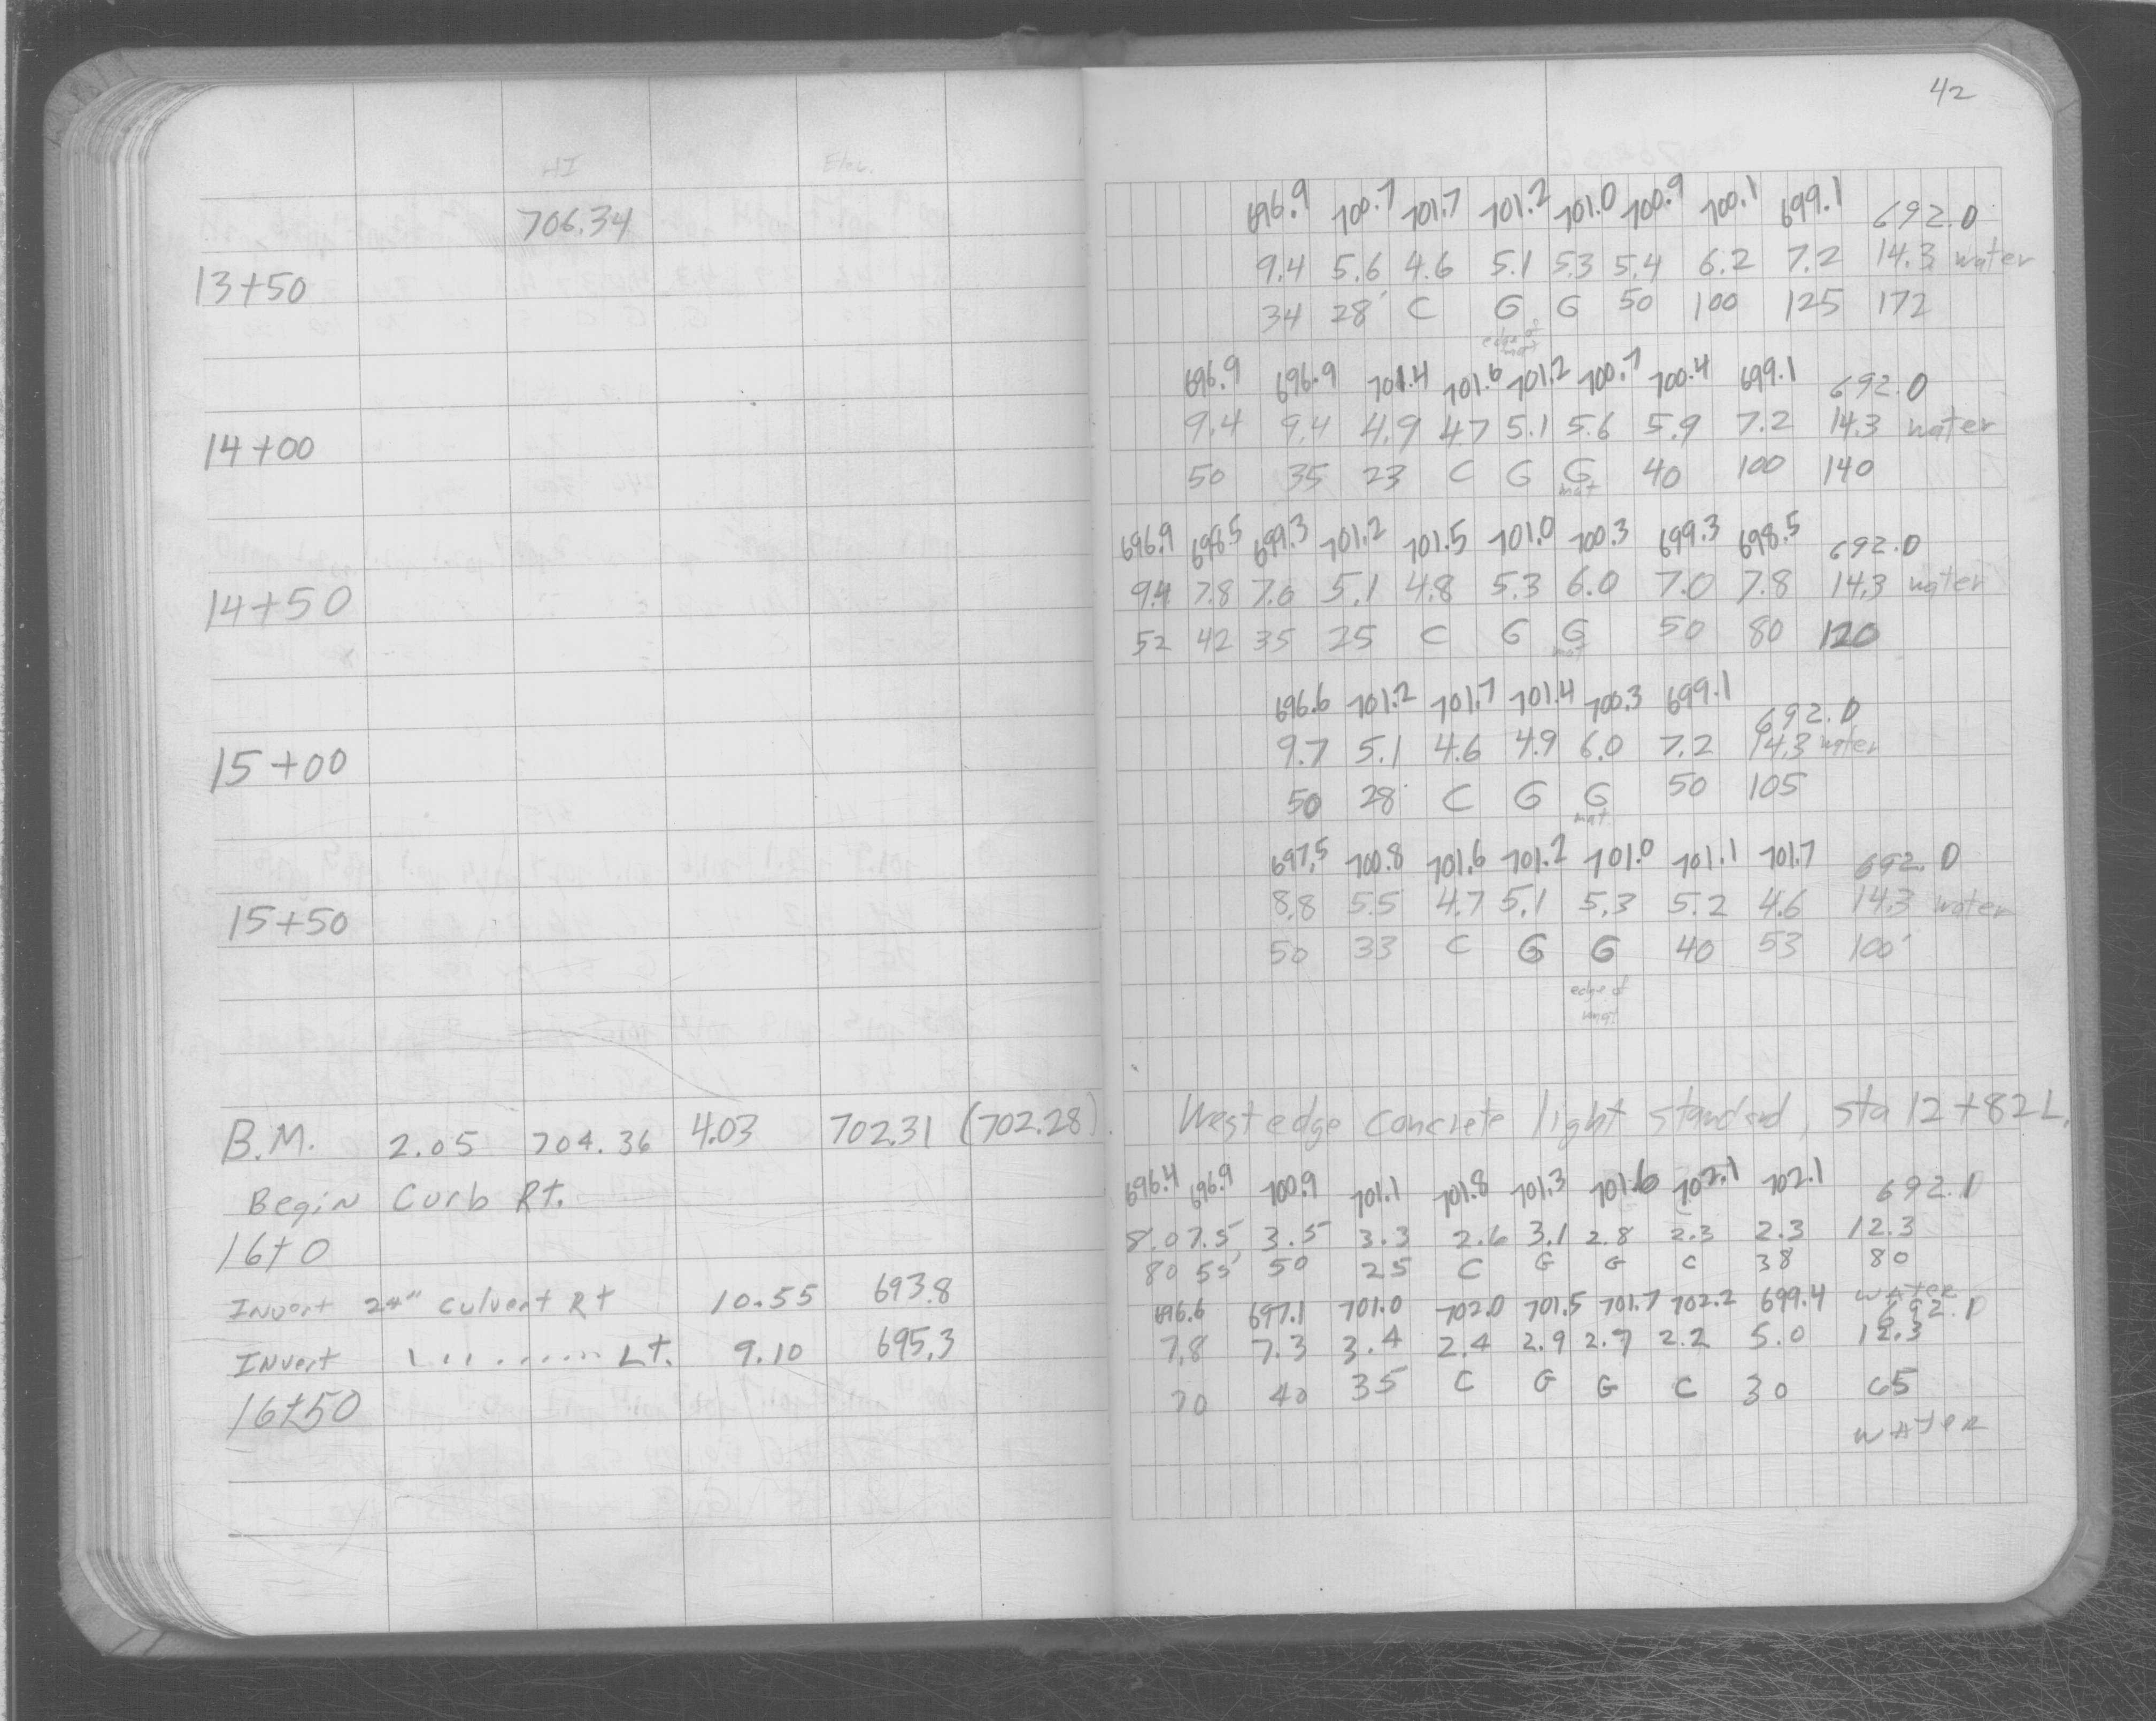 42
HI Elev.
706.34
696.9 700.7 701.7 701.2 701.0 700.9 700.1 699.1 692.0
13+50 9.4 5.6 4.6 5.1 5.3 5.4 6.2 7.2 14.3 water
34 28' C G G 50 100 125 172
edge of
mat
696.9 696.9 701.4 701.6 701.2 700.7 700.4 699.1 692.0
14+00 9.4 9.4 4.9 4.7 5.1 5.6 5.9 7.2 14.3 water
50 35 23 C G G 40 100 140
mat
696.9 698.5 699.3 701.2 701.5 701.0 700.3 699.3 698.5 692.0
14+50 9.4 7.8 7.0 5.1 4.8 5.3 6.0 7.0 7.8 14.3 water
52 42 35 25 C G G 50 80 120
mat
696.6 701.2 701.7 701.4 700.3 699.1 692.0
15+00 9.7 5.1 4.6 4.9 6.0 7.2 14.3 water
50 28' C G G 50 105
mat
697.5 700.8 701.6 701.2 701.0 701.1 701.7 692.0
15+50 8.8 5.5 4.7 5.1 5.3 5.2 4.6 14.3 water
50 33 C G G 40 53 100'
edge of
mat
B.M. 2.05 704.36 4.03 702.31 (702.28) West edge concrete light standard, sta 12+82 L.
Begin Curb Rt. 696.4 696.9 700.9 701.1 701.8 701.3 701.6 702.1 702.1 692.1
16+0 8.0 7.5 3.5 3.3 2.6 3.1 2.8 2.3 2.3 12.3
80 55 50 25 C G G C 38 80
WATER
Invert 24" Culvert Rt 10.55 693.8 696.6 697.1 701.0 702.0 701.5 701.7 702.2 699.4 692.1
Invert " " Lt. 9.10 695.3 7.8 7.3 3.4 2.4 2.9 2.7 2.2 5.0 12.3
16+50 70 40 35 C G G C 30 65
WATER